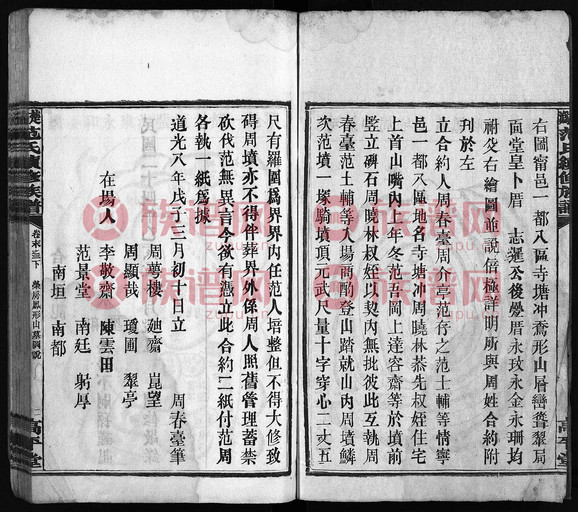 右圖甯邑一都八區寺塘冲喬形山層巒聳翠局
面堂皇卜厝 志暹公後嶨厝永玟永金永珊均
祔爻右繪圖並說倍極詳明所與周姓合約附
刋於左
立合約人周春臺周介亭范奇之范士輔等情寧
邑一都八區地名寺塘冲周曉林菾先叔姪住宅
上首山嘴內上年冬范吾岡上達容齋等於墳前
竪立硨石周曉林叔姪以契內無批彼此互執周
春臺范士輔等入場商酌登山踏就山内周墳鱗
次范墳一塚騎墳頂元武尺量十字穿心二丈五
尺有羅圍爲界界内任范人培整但不得大修致
碍周墳亦不得伴葬界外係周人照舊管理蓄禁
砍伐范無異言今欲有憑立此合約二紙付范周
各執一紙爲據
道光八年戌子三月初十日立 周春臺筆
周夢樓 廸齋 崑望
周顯哉 瓊圃 翠亭
在場人 李敬齋 陳雲田
范景堂 南廷 躬厚
南垣 南都
范氏續修族譜
卷末之三下
榮房鳳形山墓圖說
二
高平堂
范氏續修族譜
高平堂
族谱网
族谱网
族谱网
族谱网